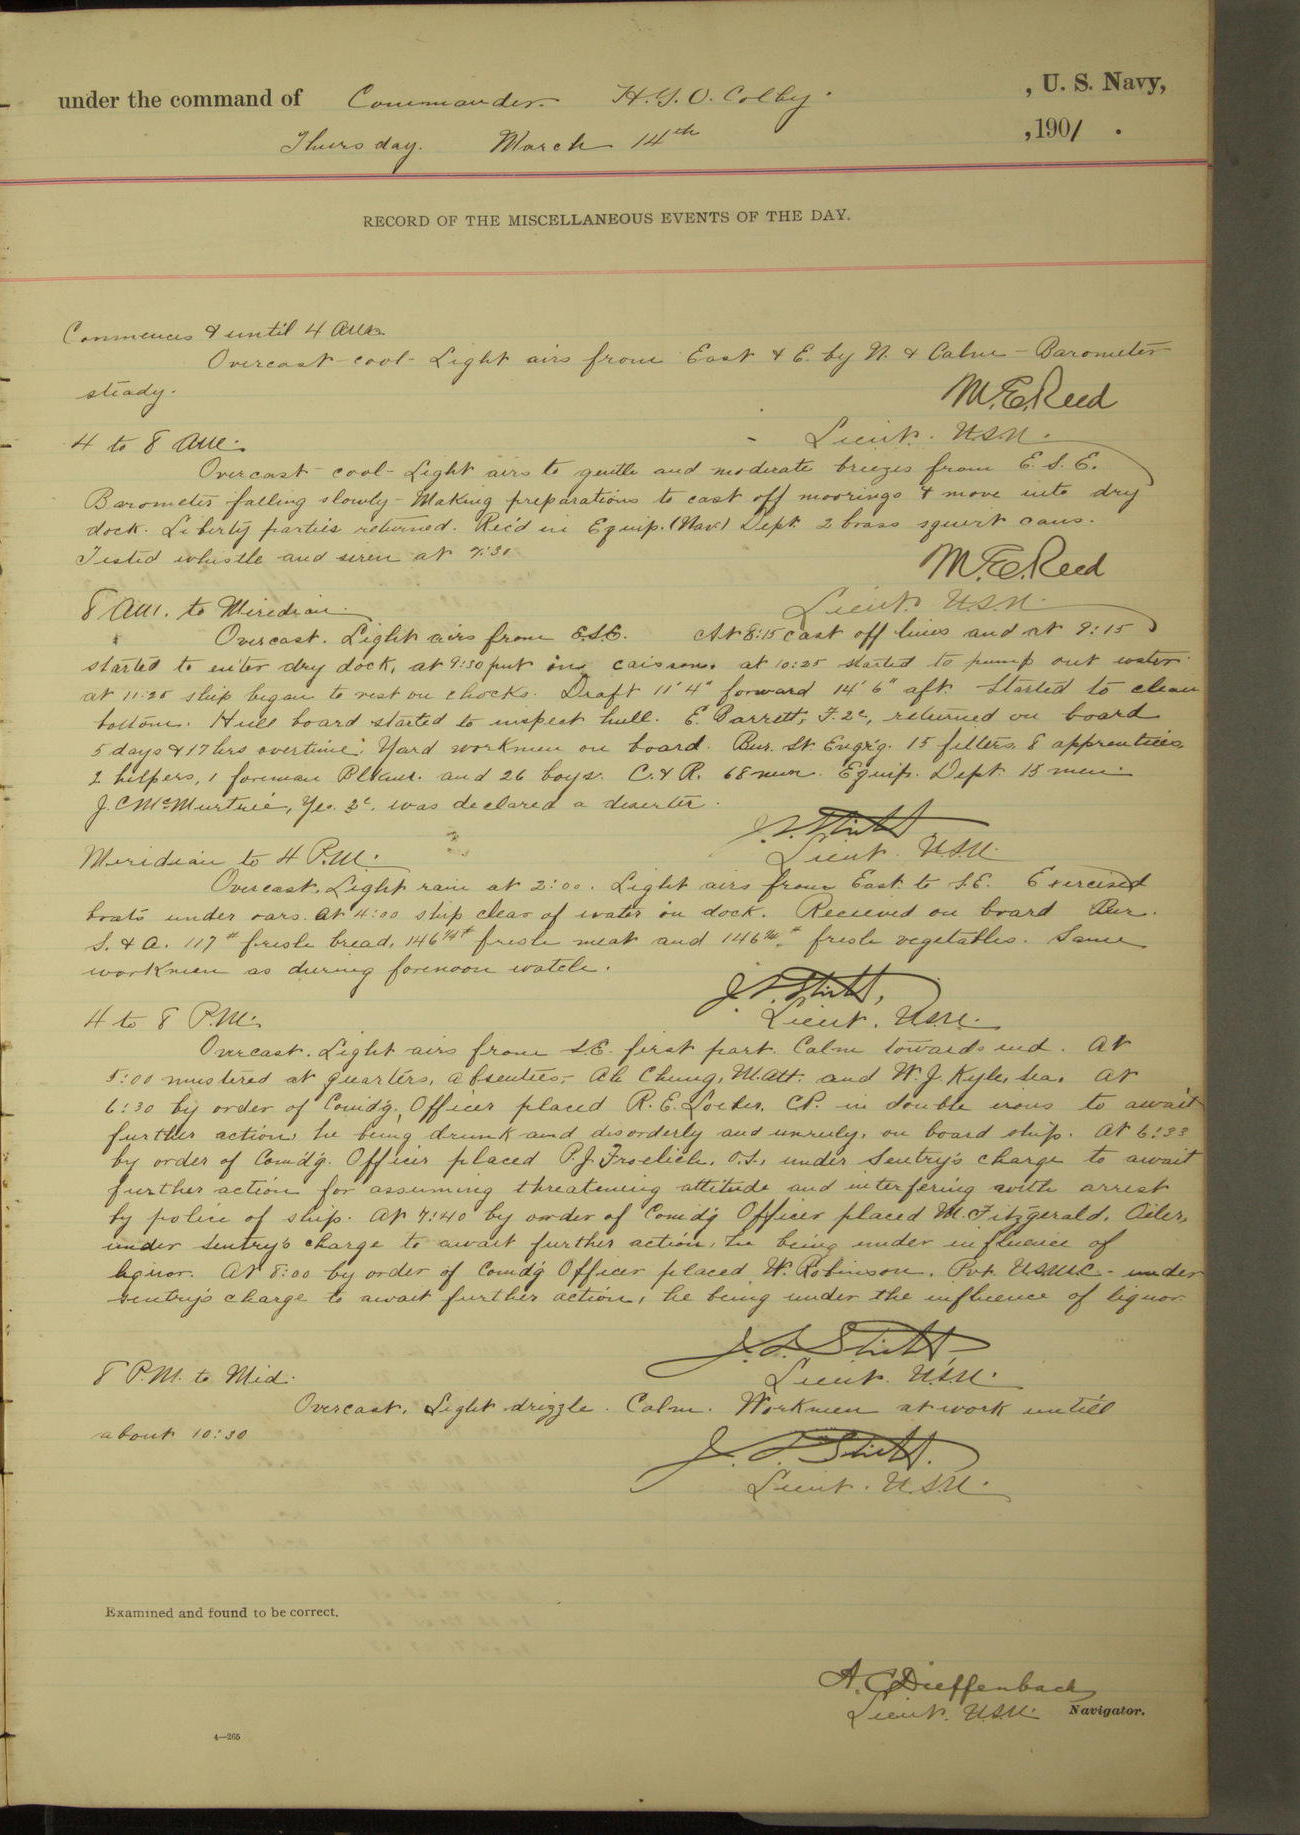 under the command of Commander H. G. O. Colby. , U. S. Navy,
Thursday. March 14th , 1901.
RECORD OF THE MISCELLANEOUS EVENTS OF THE DAY.
Commences & until 4 AM.
Overcast - cool - Light airs from East & E. by N. & Calm - Barometer
steady.
M. E. Reed
Lieut. U.S.N.
4 to 8 AM.
Overcast - cool - Light airs to gentle and moderate breezes from E. S. E.
Barometer falling slowly - Making preparations to cast off moorings & move into dry
dock. Liberty parties returned. Rec'd in Equip. (Nav.) Dept. 2 brass squirt cans.
Tested whistle and siren at 7:30
M. E. Reed
Lieut. U.S.N.
8 AM. to Meridian.
Overcast. Light airs from E.S.E. At 8:15 cast off lines and at 9:15
started to enter dry dock, at 9:30 put in caisson. at 10:25 started to pump out water.
at 11:25 ship began to rest on chocks. Draft 11' 4" forward 14' 6" aft. Started to clean
bottom. Hull board started to inspect hull. E. Barrett, F. 2c, returned on board
5 days & 17 hrs overtime. Yard workmen on board. Bur. St. Eng'r'g. 15 fitters, 8 apprentices,
2 helpers, 1 foreman and 26 boys. C. & R. 68 men. Equip. Dept. 15 men.
J. C. McMurtrie, Yeo. 3c. was declared a deserter.
Lieut. U.S.N.
Meridian to 4 P.M.
Overcast. Light rain at 2:00. Light airs from East to S.E. Exercised
boats under oars. At 4:00 ship clear of water in dock. Received on board Bur.
S. & A. 117# fresh bread, 146 1/4# fresh meat and 146 3/4# fresh vegetables. Same
workmen as during forenoon watch.
Lieut. U.S.N.
4 to 8 P.M.
Overcast. Light airs from S.E. first part. Calm towards end. At
5:00 mustered at quarters, absentees, - Ah Chung, M. Att. and W. J. Kyle, Sea. At
6:30 by order of Comd'g. Officer placed R. E. C.P. in double irons to await
further action, he being drunk and disorderly and unruly, on board ship. At 6:33
by order of Comd'g. Officer placed P. J. Froelich, O.S., under Sentry's charge to await
further action for assuming threatening attitude and interfering with arrest
by police of ship. At 7:40 by order of Comd'g Officer placed M. Fitzgerald, Oiler,
under sentry's charge to await further action, he being under influence of
liquor. At 8:00 by order of Comd'g Officer placed W. Robinson, Pvt. U.S.M.C. - under
sentry's charge to await further action, he being under the influence of liquor.
Lieut. U.S.N.
8 P.M. to Mid.
Overcast. Light drizzle. Calm. Workmen at work untill
about 10:30
Lieut. U.S.N.
Examined and found to be correct.
A. C. Dieffenbach
Lieut. U.S.N. Navigator.
4—265